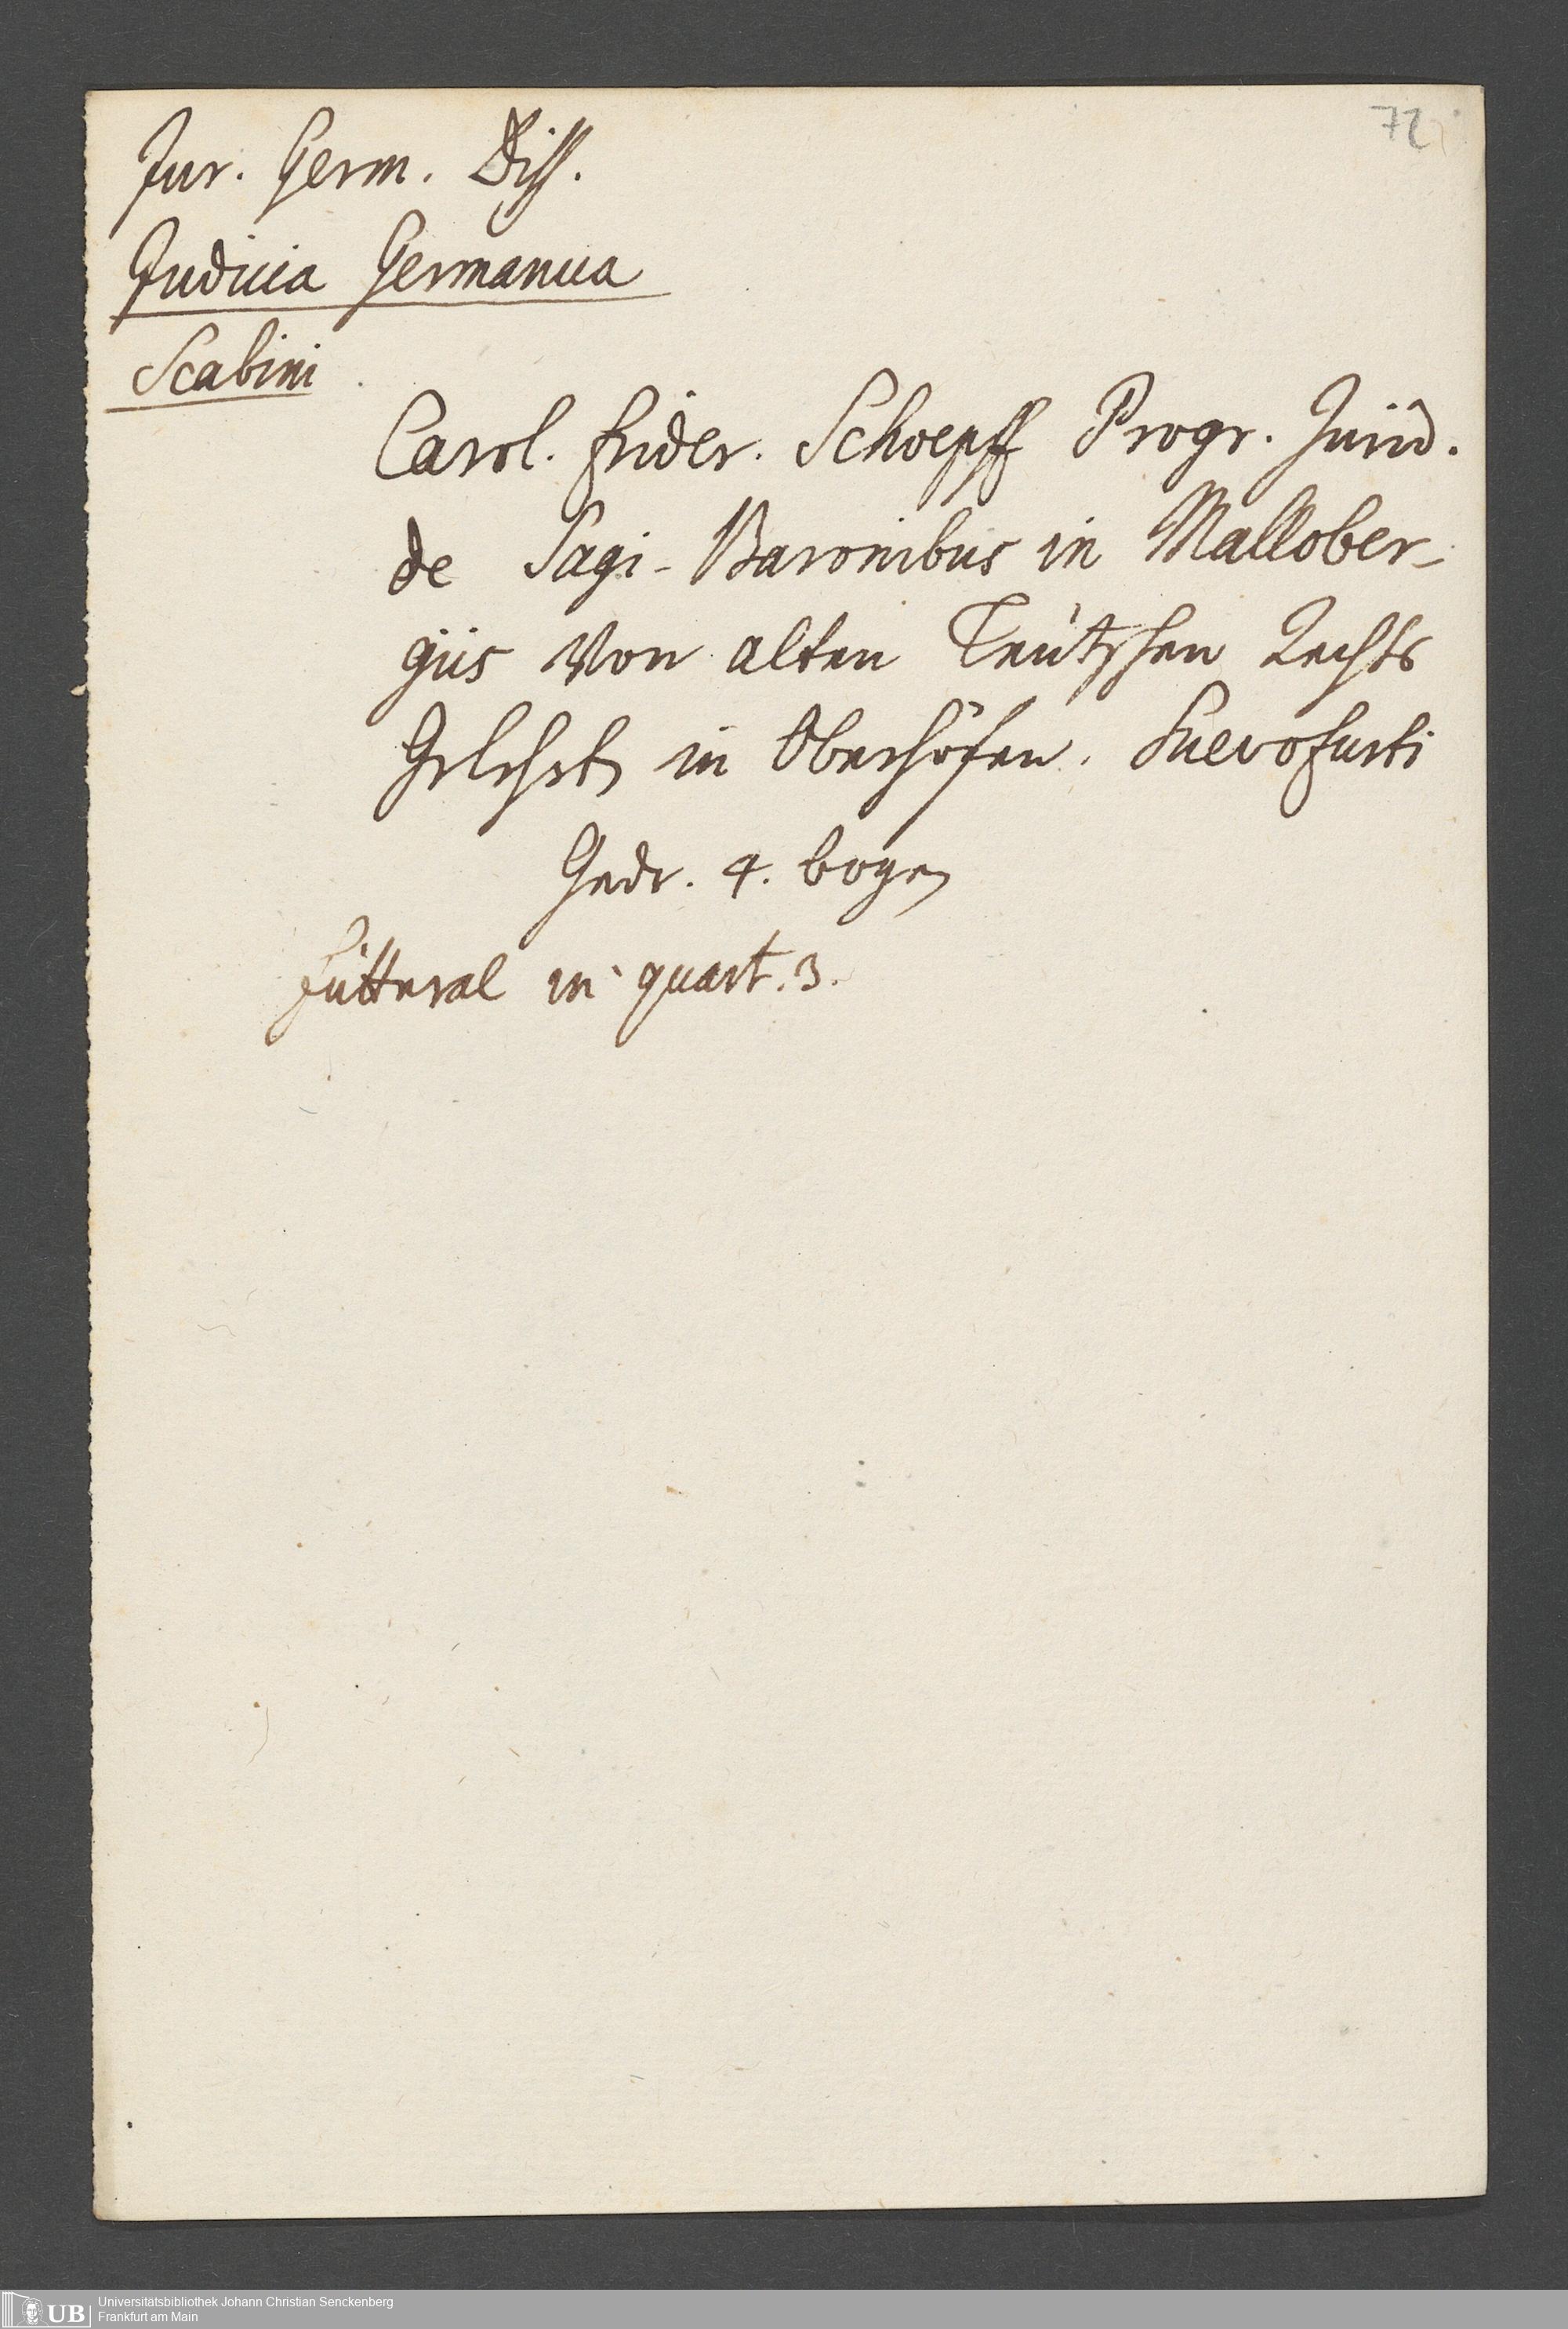 72
Jur. Germ. Diss.
Judicia Germanica
Scabini
Carol. Frider. Schoepff Progr. Jurid.
de Sagi-Baronibus in Mallober-
giis Von alten Teutschen Rechts
Gelehrten in Oberhöfen. Suevofurti
Gedr. 4. bogen
Futteral in quart. 3.
UB
Universitätsbibliothek Johann Christian Senckenberg
Frankfurt am Main